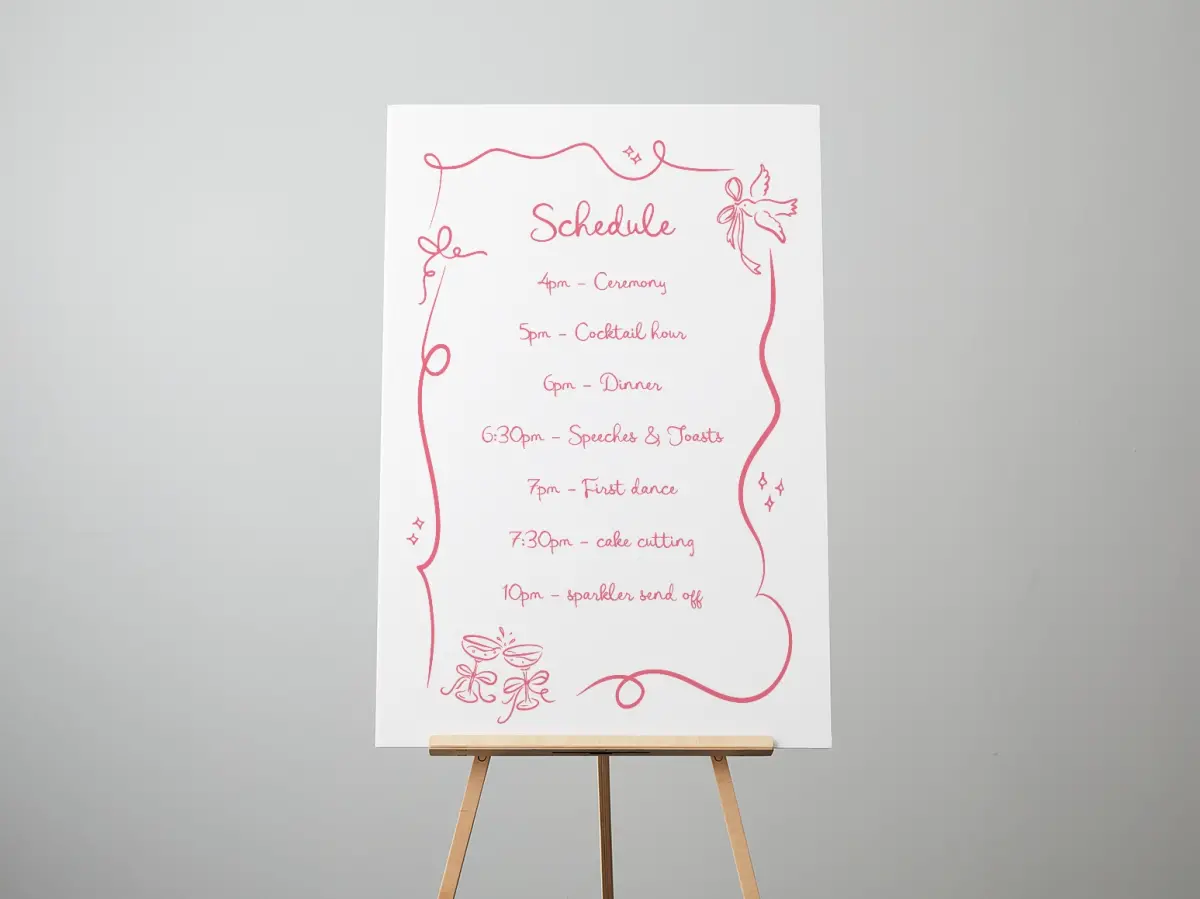 Schedule
4pm - Ceremony
5pm - Cocktail hour
6pm - Dinner
6:30pm - Speeches & Toasts
7pm - First dance
7:30pm - cake cutting
10pm - sparkler send off